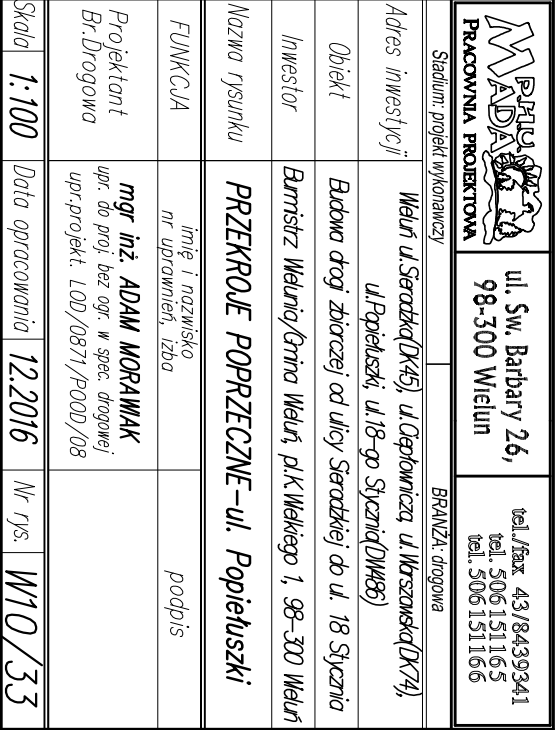 P.H.U.
MADA
PRACOWNIA PROJEKTOWA
ul. Sw. Barbary 26,
98-300 Wielun
tel./fax 43/8439341
tel. 506151165
tel. 506151166
Stadium: projekt wykonawczy
BRANŻA: drogowa
Adres inwestycji
Wieluń ul.Sieradzka(DK45), ul.Ciepłownicza, ul.Warszawska(DK74),
ul.Popiełuszki, ul.18-go Stycznia(DW486)
Obiekt
Budowa drogi zbiorczej od ulicy Sieradzkiej do ul. 18 Stycznia
Inwestor
Burmistrz Wielunia/Gmina Wieluń, pl.K.Wielkiego 1, 98-300 Wieluń
Nazwa rysunku
PRZEKROJE POPRZECZNE-ul. Popiełuszki
FUNKCJA
imię i nazwisko
nr uprawnień, izba
podpis
Projektant
Br.Drogowa
mgr inż. ADAM MORAWIAK
upr. do proj. bez ogr. w spec. drogowej
upr.projekt. LOD/0871/POOD/08
Skala
1:100
Data opracowania
12.2016
Nr rys.
W10/33